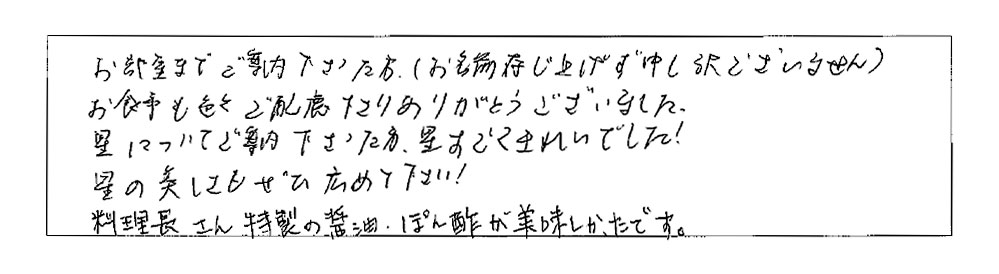 お部屋までご案内下さった方、(お名前存じ上げず申し訳ございません)
お食事も色々ご配慮下さりありがとうございました。
星についてご案内下さった方、星すごくきれいでした!
星の美しさもぜひ広めて下さい!
料理長さん特製の醤油・ぽん酢が美味しかったです。